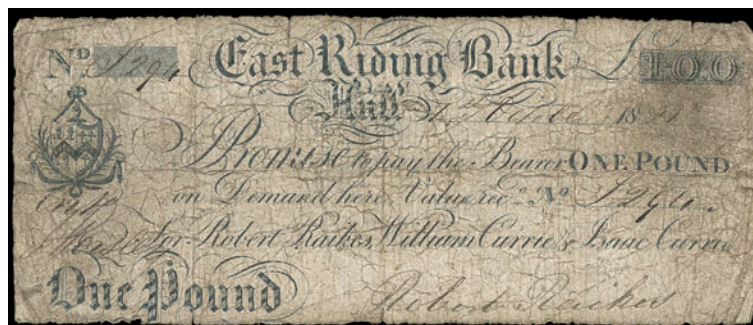 No East Riding Bank £1.0.0
Hull October 18
Promise to pay the Bearer ONE POUND
on Demand here Value recd. No
For Robert Raikes, William Currie & Isaac Currie
One Pound Robert Raikes